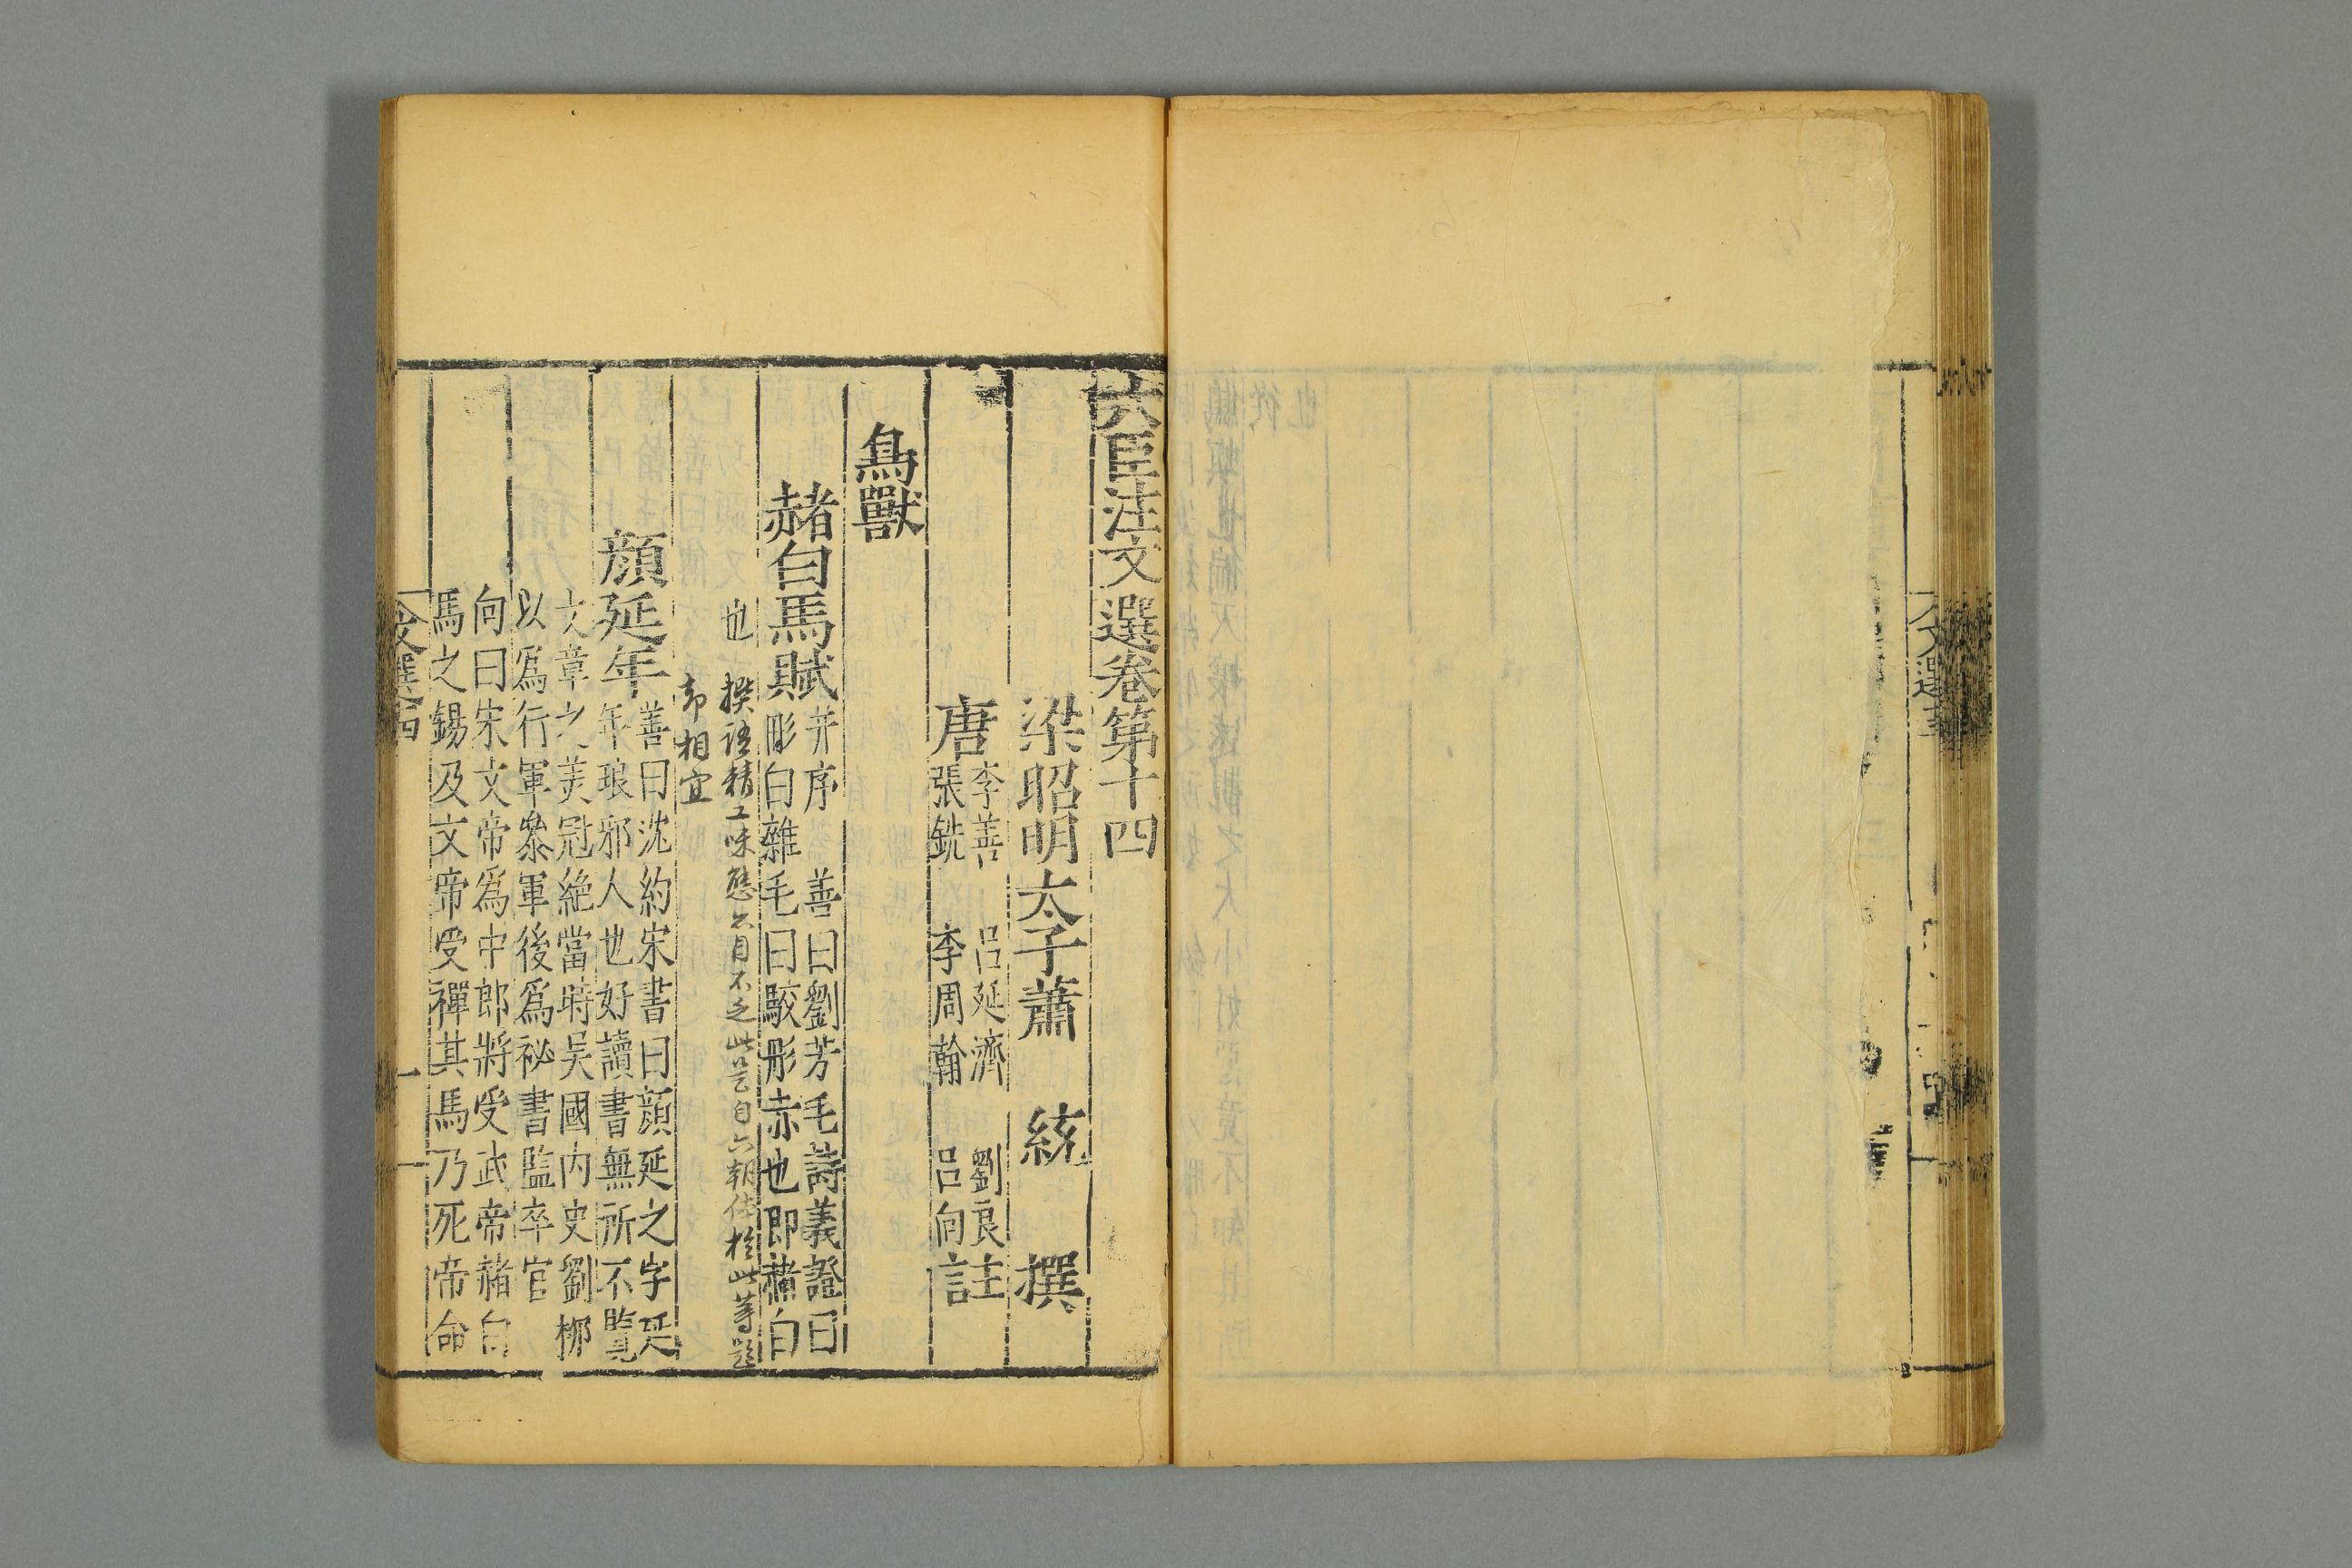 六臣注文選卷第十四
梁昭明太子蕭統撰
唐李善 呂延濟 劉良
張銑 李周翰 呂向註
鳥獸
赭白馬賦并序 善曰劉芳毛詩義證曰
彤白雜毛曰駁彤赤也即赭白
也
撰語精工味 不乏此是自六朝佳於此等題
却相宜
顏延年善曰沈約宋書曰顏延之字延
年琅邪人也好讀書無所不覽
文章之美冠絶當時吴國内史劉柳
以爲行軍叅軍後爲祕書監卒官
向曰宋文帝爲中郎將受武帝赭白
馬之錫及文帝受禪其馬乃死帝命
文選
文選